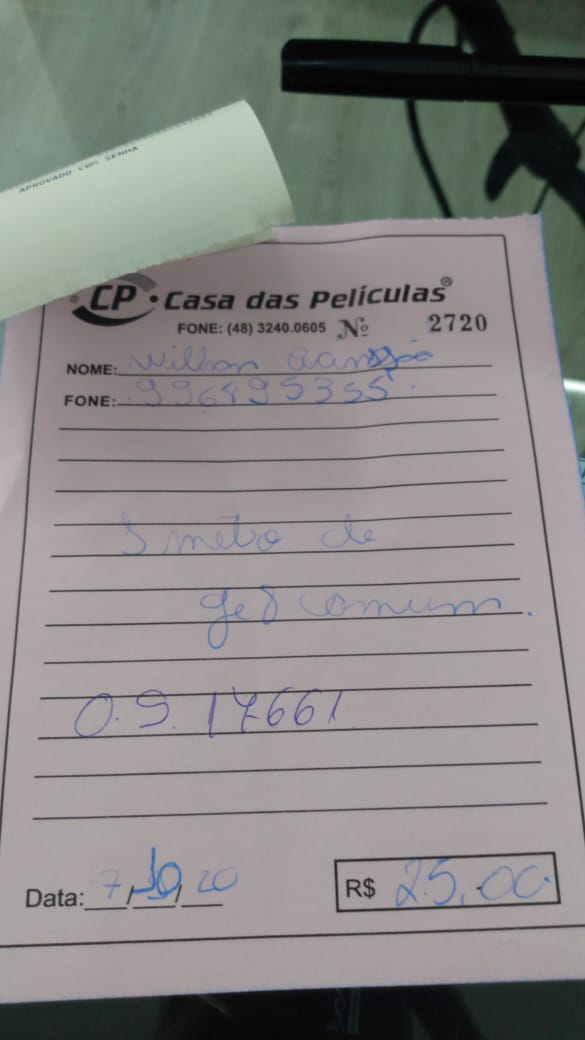 APROVADO COM SENHA
CP • Casa das Películas®
FONE: (48) 3240.0605 Nº 2720
NOME: Willian
FONE: 996495355
metro de
comum.
O.S. 17661
Data: 7/10/20 R$ 25,00